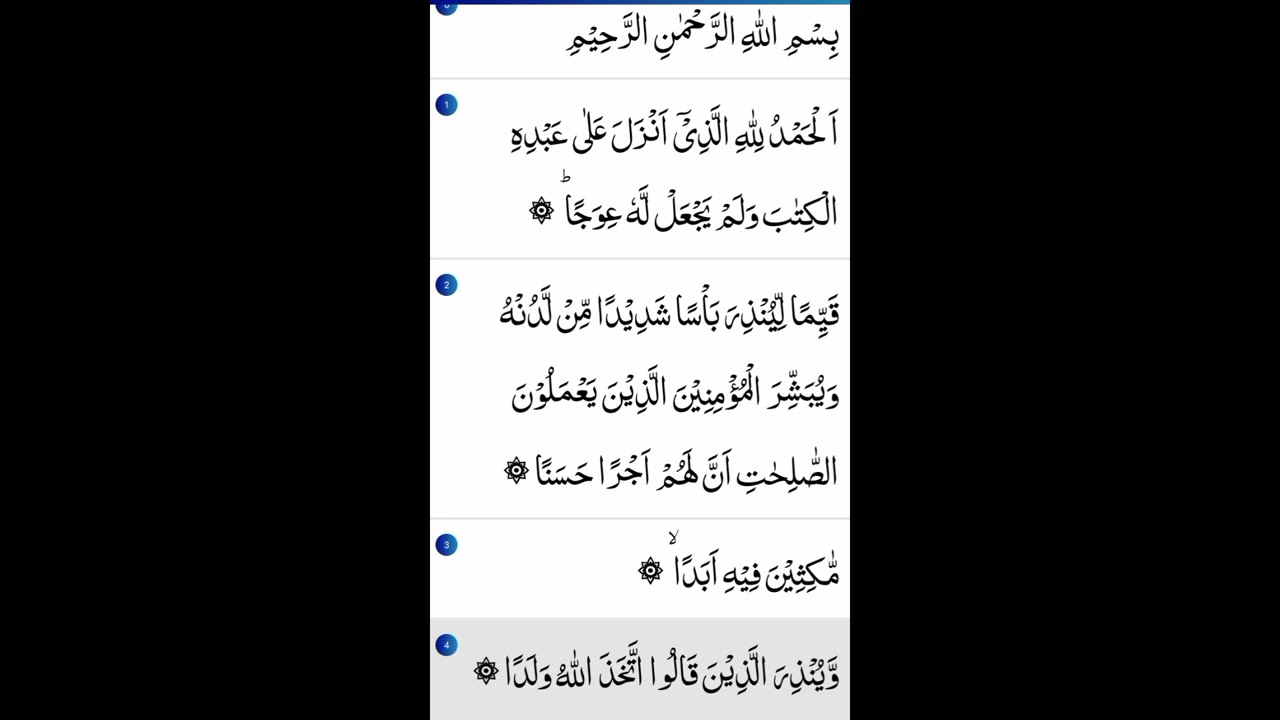 بِسْمِ اللّٰهِ الرَّحْمٰنِ الرَّحِيْمِ
1
اَلْحَمْدُ لِلّٰهِ الَّذِيْٓ اَنْزَلَ عَلٰى عَبْدِهِ
الْكِتٰبَ وَلَمْ يَجْعَلْ لَّهٗ عِوَجًا ؕ ۞
2
قَيِّمًا لِّيُنْذِرَ بَاْسًا شَدِيْدًا مِّنْ لَّدُنْهُ
وَيُبَشِّرَ الْمُؤْمِنِيْنَ الَّذِيْنَ يَعْمَلُوْنَ
الصّٰلِحٰتِ اَنَّ لَهُمْ اَجْرًا حَسَنًا ۞
3
مّٰكِثِيْنَ فِيْهِ اَبَدًا ۙ ۞
4
وَّيُنْذِرَ الَّذِيْنَ قَالُوا اتَّخَذَ اللّٰهُ وَلَدًا ۞